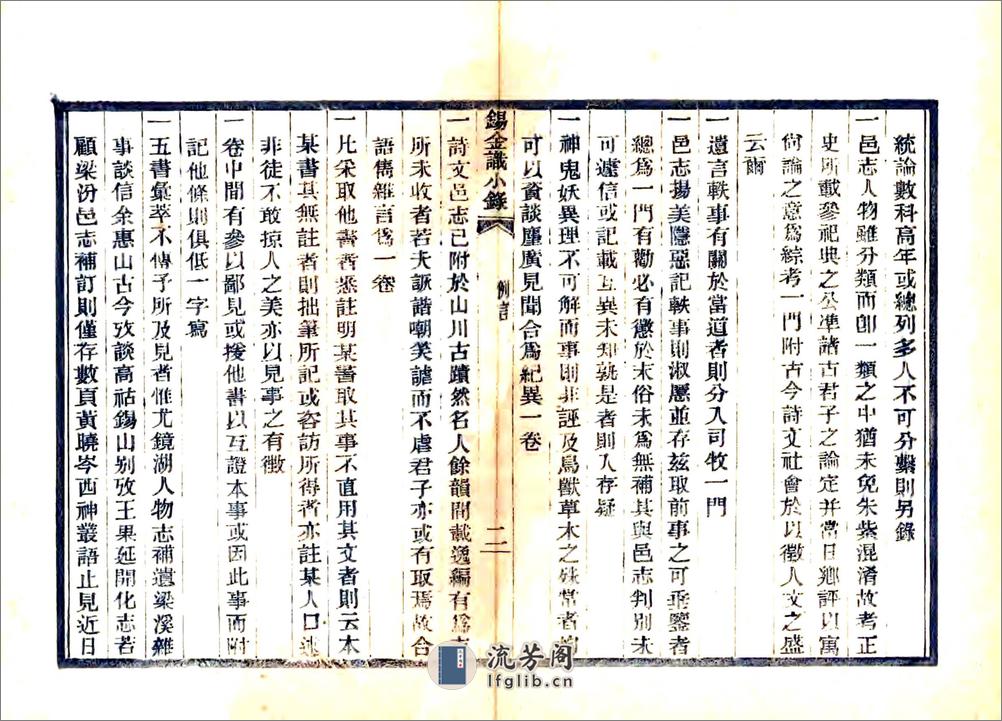 統論數科高年或總列多人不可分繫則另錄
一邑志人物雖分類而卽一類之中猶未免朱紫混淆故考正
史所載參祀典之公準諸古君子之論定并當日鄉評以寓
尙論之意爲綜考一門附古今詩文社會於以徵人文之盛
云爾
一遺言軼事有關於當道者則分入司牧一門
一邑志揚美隱惡記軼事則淑慝並存玆取前事之可垂鑒者
總爲一門有勸必有懲於末俗未爲無補其與邑志判別未
可遽信或記載互異未知孰是者則入存疑
一神鬼妖異理不可解而事則非誣及鳥獸草木之殊常者均
可以資談麈廣見聞合爲紀異一卷
錫金識小錄
例言
二
一詩文邑志已附於山川古蹟然名人餘韻間載逸編有爲志
所未收者若夫詼諧嘲笑謔而不虐君子亦或有取焉故合
語雋雜言爲一卷
一凡采取他書者悉註明某書取其事不直用其文者則云本
某書其無註者則拙筆所記或咨訪所得者亦註某人口述
非徒不敢掠人之美亦以見事之有徵
一卷中間有參以鄙見或援他書以互證本事或因此事而附
記他條則俱低一字寫
一五書彙萃不傳予所及見者惟尤鏡湖人物志補遺梁溪雜
事談信余惠山古今攷談高祜錫山別攷王果延開化志若
顧梁汾邑志補訂則僅存數頁黃曉岑西神叢語止見近日
流芳阁
lfglib.cn